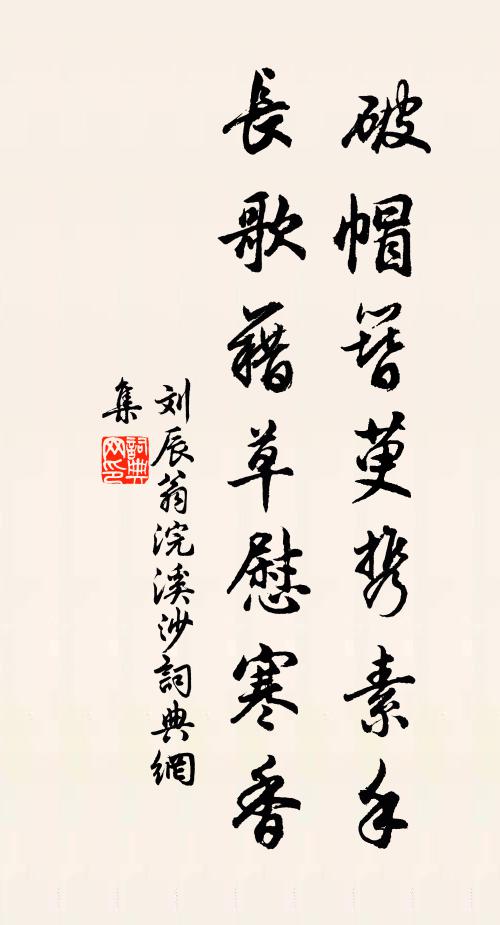 破帽簪萸携素手
長歌藉草慰寒香
刘辰翁浣溪沙詞典網
集
詞典
网印